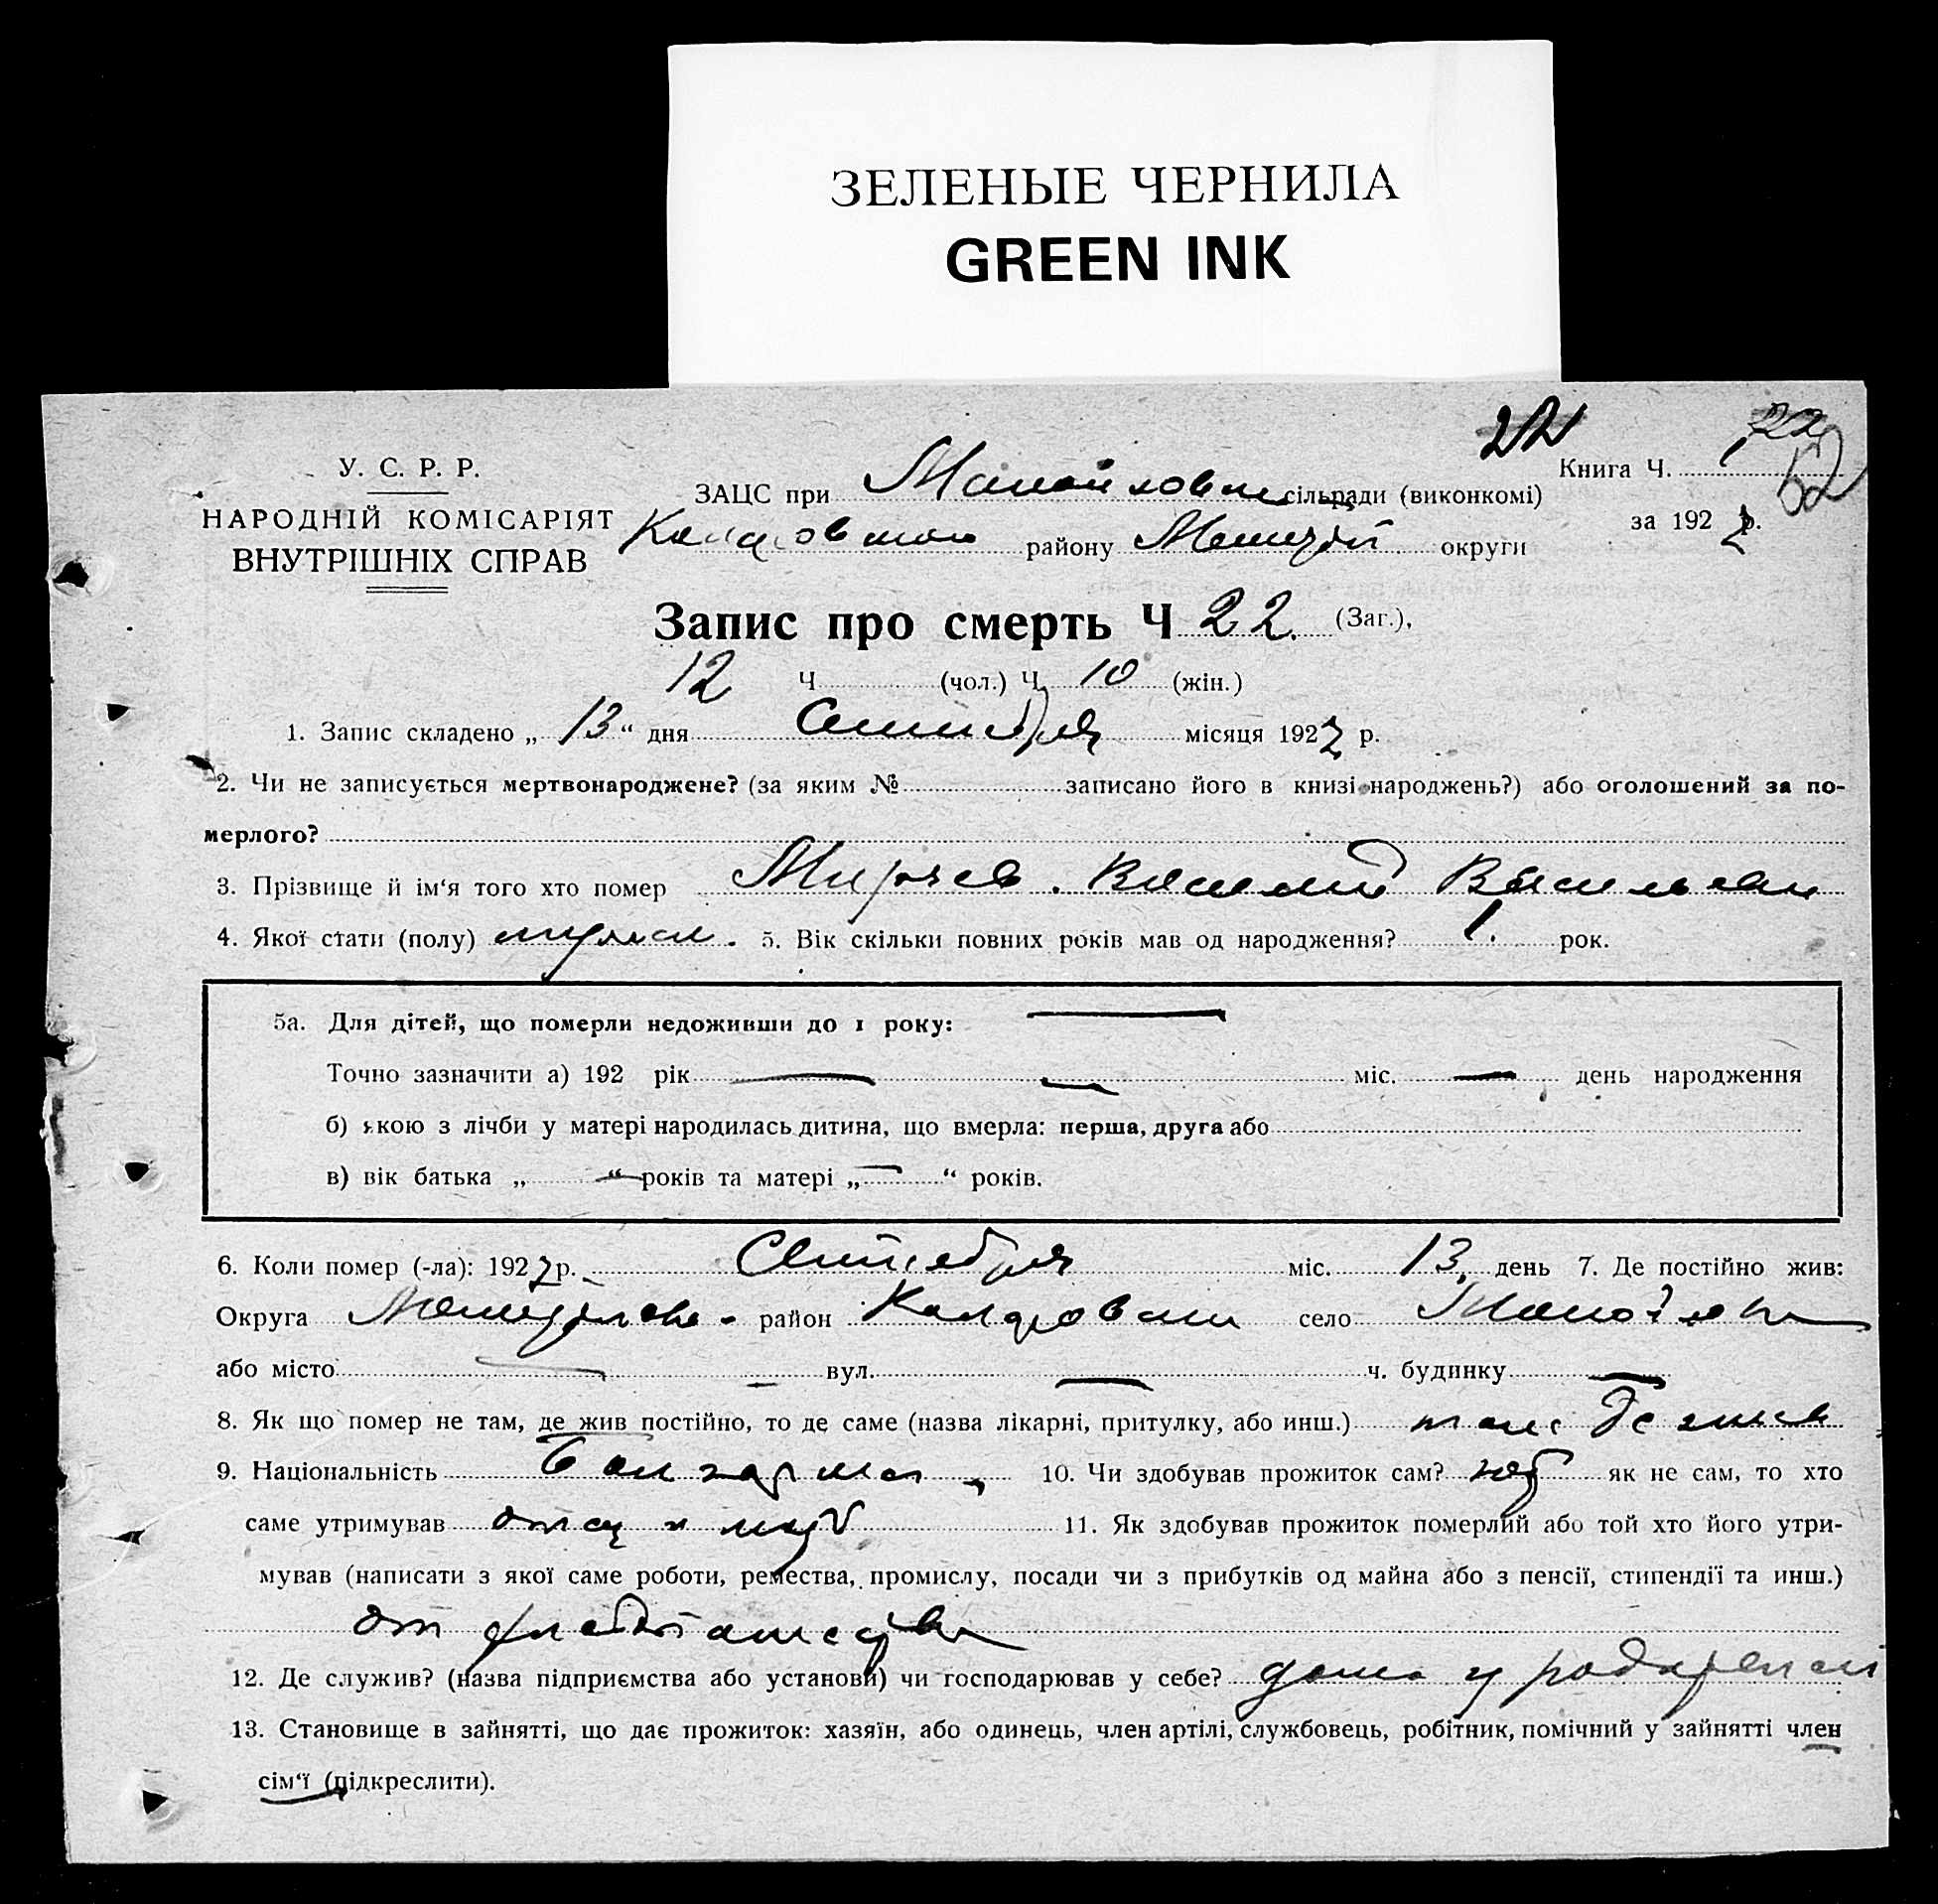 ЗЕЛЕНЫЕ ЧЕРНИЛА
GREEN INK
22
У. С. Р. Р.
НАРОДНІЙ КОМІСАРІЯТ
ВНУТРІШНІХ СПРАВ
Книга Ч. 1
52
за 1927 р.
ЗАЦС при сільради (виконкомі)
району округи
Запис про смерть Ч 22. (Заг.),
12 Ч (чол.) Ч 10 (жін.)
1. Запис складено „ 13 “ дня Сентября місяця 1927 р.
2. Чи не записується мертвонароджене? (за яким № записано його в книзі народжень?) або оголошений за по-
мерлого?
3. Прізвище й ім‘я того хто помер Мирчев. Василий Васильев
4. Якої стати (полу) мужск. 5. Вік скільки повних років мав од народження? 1. рок.
5а. Для дітей, що померли недоживши до 1 року:
Точно зазначити а) 192 рік міс. день народження
б) якою з лічби у матері народилась дитина, що вмерла: перша, друга або
в) вік батька „ “ років та матері „ “ років.
6. Коли помер (-ла): 1927 р. Сентября міс. 13. день 7. Де постійно жив:
Округа район село
або місто вул. ч. будинку
8. Як що помер не там, де жив постійно, то де саме (назва лікарні, притулку, або инш.) там где жив
9. Національність 10. Чи здобував прожиток сам? нет як не сам, то хто
саме утримував отец и мать 11. Як здобував прожиток померлий або той хто його утри-
мував (написати з якої саме роботи, ремества, промислу, посади чи з прибутків од майна або з пенсії, стипендії та инш.)
от хлебопашества
12. Де служив? (назва підприємства або установи) чи господарював у себе? дома у родителей
13. Становище в зайнятті, що дає прожиток: хазяїн, або одинець, член артілі, службовець, робітник, помічний у зайнятті член
сім‘ї (підкреслити).